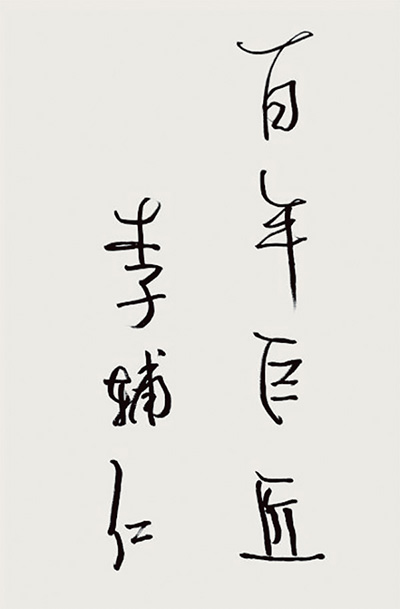 百年巨匠
李辅仁